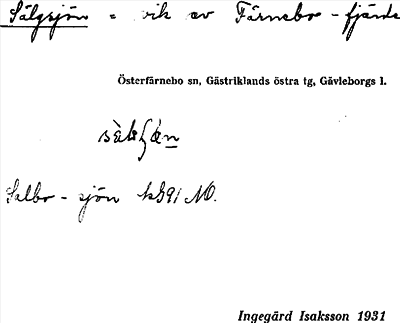 Sälgsjön = vik av Färnebo-fjärde
Österfärnebo sn, Gästriklands östra tg, Gävleborgs l.
Salbo-sjön kbl 91 NO.
Ingegärd Isaksson 1931